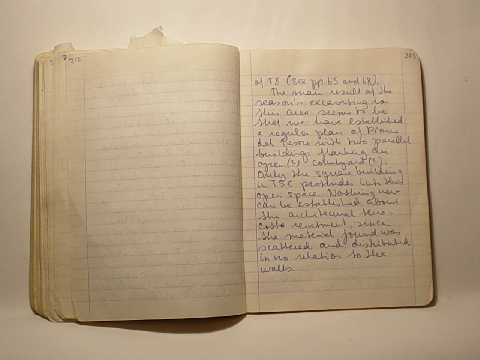 212
211
of T8 (see pp 65 and 68).
The main result of the
season's excavising in
this area seems to be
that we have established
a regular plan of Piano
del Tesoro with two parallel
buildings flanking an
open (?) courtyard (?).
Only the square building
in T5E protrudes into this
open space. Nothing new
can be established about
the architectural terra-
cotta revetment, since
the material found was
scattered and distributed
in no relation to the
walls